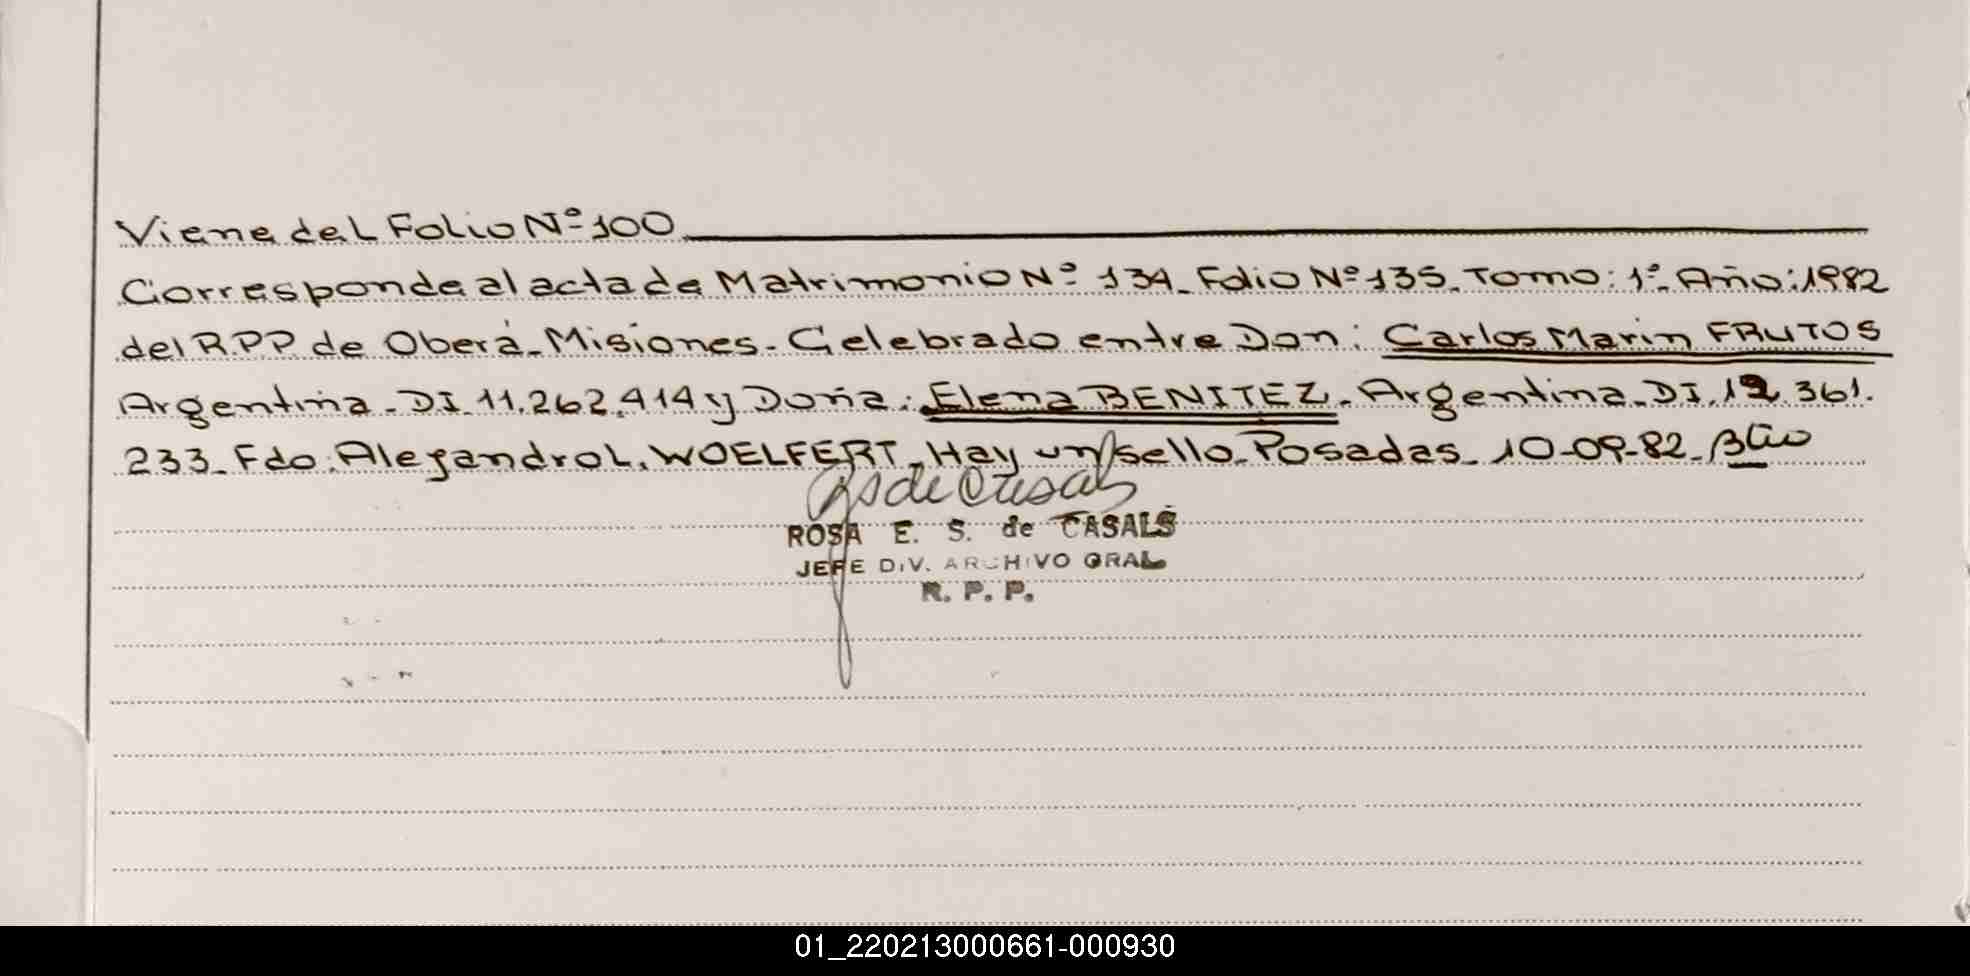 Viene del Folio Nº 100
Corresponde al acta de Matrimonio Nº 134_ Folio Nº 135_ Tomo: 1º_ Año: 1982
del R.P.P. de Oberá_ Misiones_ Celebrado entre Don: Carlos Marin FRUTOS
Argentina_ DI. 11.262.414 y Doña: Elena BENITEZ_ Argentina_ DI. 12.361.
233_ Fdo. Alejandro L. WOELFERT_ Hay un sello_ Posadas_ 10-09-82_
ROSA E. S. de CASALS
JEFE DIV. ARCHIVO GRAL
R. P. P.
01_220213000661-000930